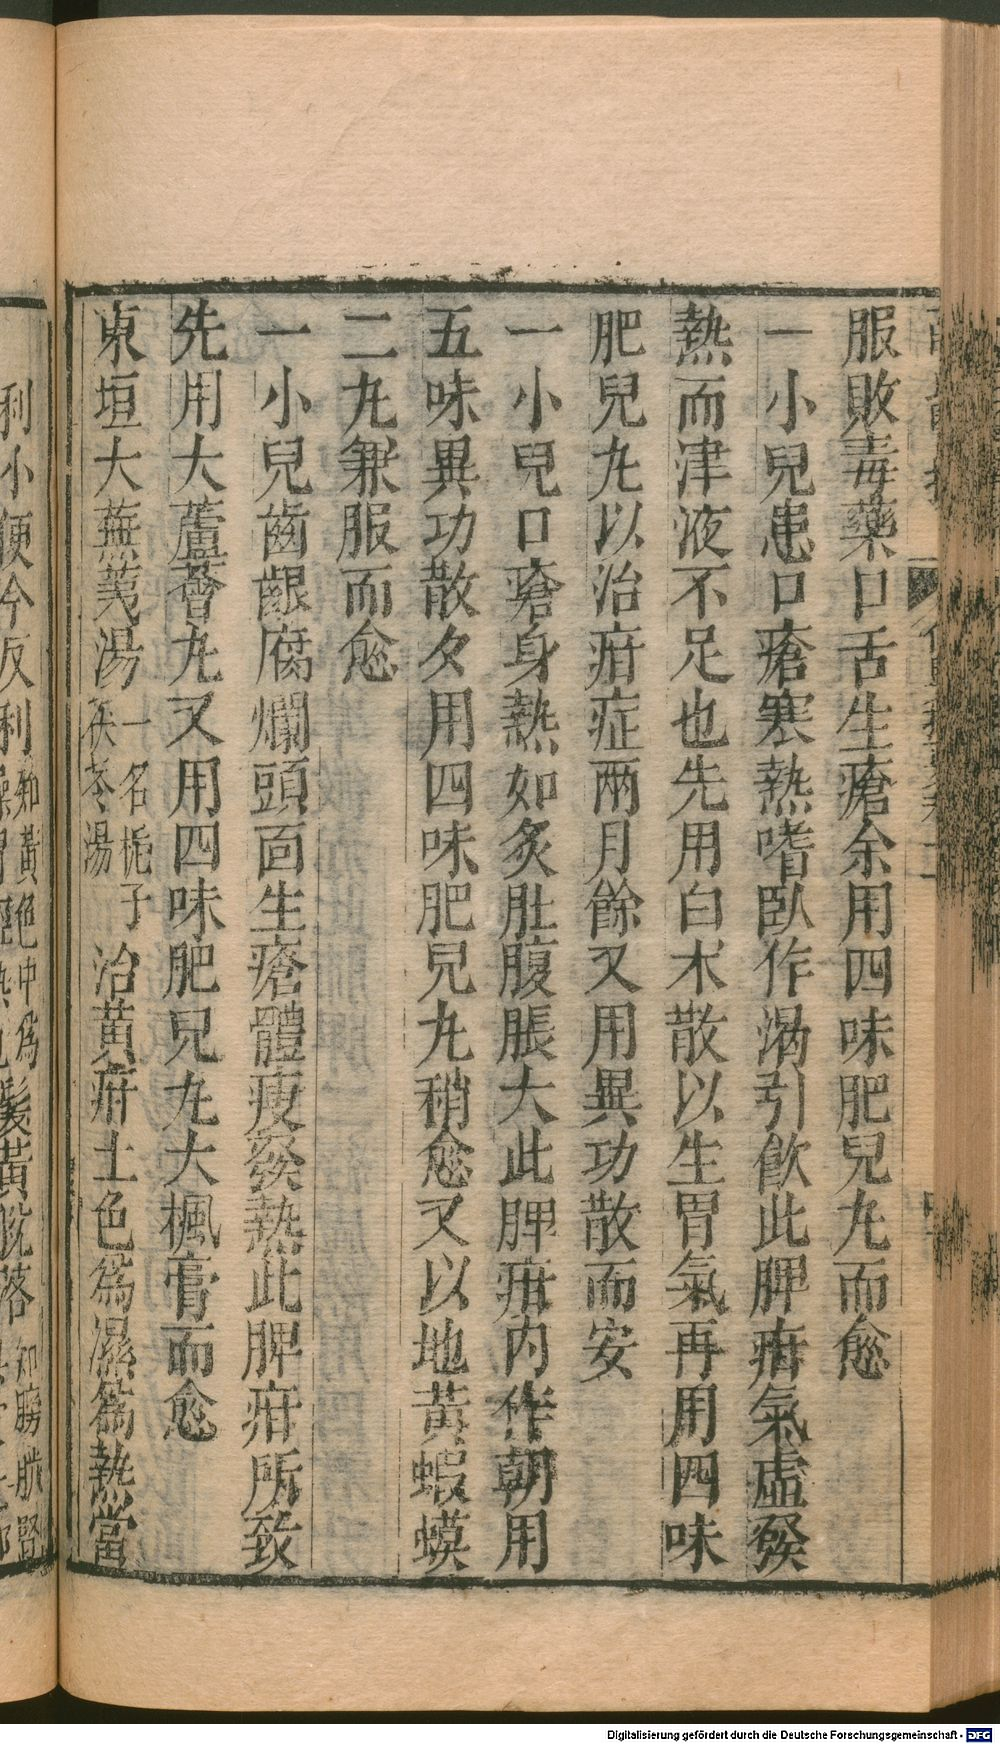 服敗毒藥口舌生瘡余用四味肥兒丸而愈
一小兒患口瘡寒熱嗜臥作渴引飲此脾疳氣虛發
熱而津液不足也先用白朮散以生胃氣再用四味
肥兒丸以治疳症兩月餘又用異功散而安
一小兒口瘡身熱如炙肚腹脹大此脾疳內作朝用
五味異功散夕用四味肥兒丸稍愈又以地黃蝦蟆
二丸兼服而愈
一小兒齒齦腐爛頭面生瘡體瘦發熱此脾疳所致
先用大蘆薈丸又用四味肥兒丸大楓膏而愈
東垣大蕪荑湯一名梔子茯苓湯治黃疳土色為濕為熱當
利小便今反利知黃色中為髮黃脫落知膀胱腎
Digitalisierung gefördert durch die Deutsche Forschungsgemeinschaft - DFG